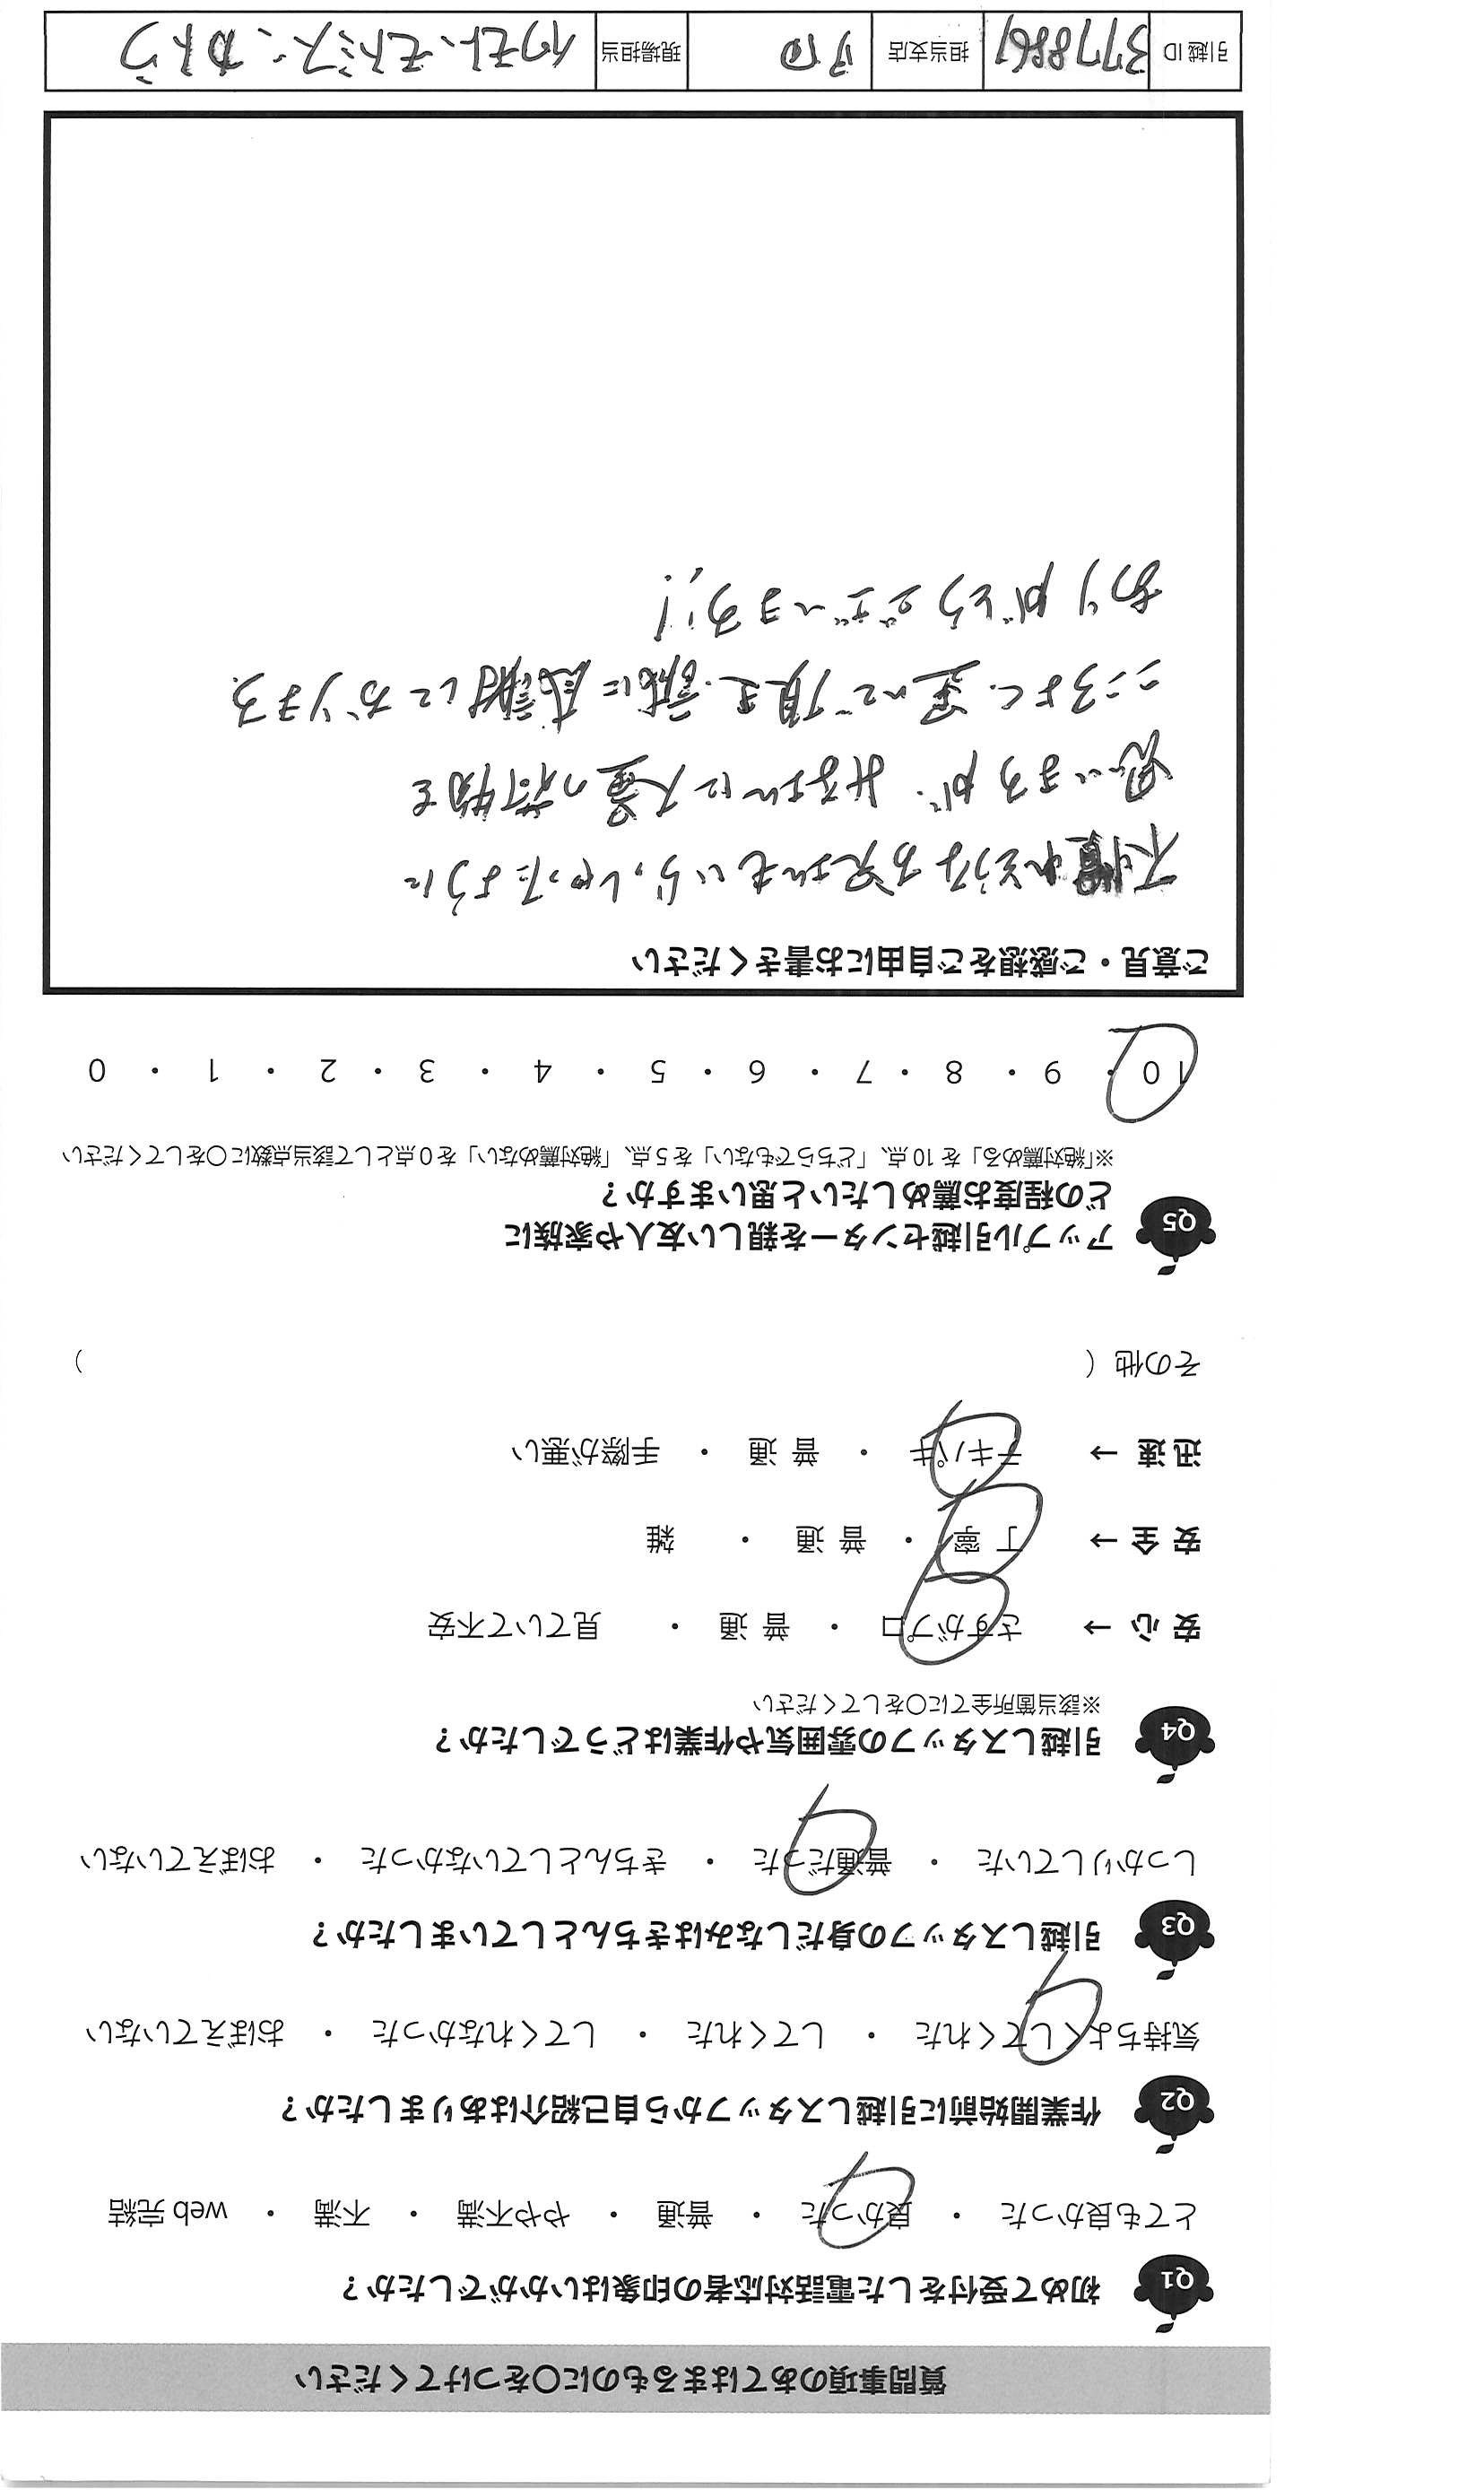 質問事項のあてはまるものに○をつけてください
Q1 初めて受付をした電話対応者の印象はいかがでしたか？
とても良かった ・ 良かった ・ 普通 ・ やや不満 ・ 不満 ・ web 完結
Q2 作業開始前に引越しスタッフから自己紹介はありましたか？
気持ちよくしてくれた ・ してくれた ・ してくれなかった ・ おぼえていない
Q3 引越しスタッフの身だしなみはきちんとしていましたか？
しっかりしていた ・ 普通だった ・ きちんとしていなかった ・ おぼえていない
Q4 引越しスタッフの雰囲気や作業はどうでしたか？
※該当箇所全てに○をしてください
安 心 → さすがプロ ・ 普 通 ・ 見ていて不安
安 全 → 丁 寧 ・ 普 通 ・ 雑
迅 速 → テキパキ ・ 普 通 ・ 手際が悪い
その他（ ）
Q5 アップル引越センターを親しい友人や家族に
どの程度お薦めしたいと思いますか？
※「絶対薦める」を 10 点、「どちらでもない」を 5 点、「絶対薦めない」を 0 点として該当点数に○をしてください
10 ・ 9 ・ 8 ・ 7 ・ 6 ・ 5 ・ 4 ・ 3 ・ 2 ・ 1 ・ 0
ご意見・ご感想をご自由にお書きください
不慣れそうな お兄さんもいらっしゃったように
思いますが、 に大量の荷物を
こころよく 運んで頂き 誠に感謝しております。
ありがとうございます!!
引越 ID 3778861 担当支店 現場担当 イワモト、モトミズ、カトウ